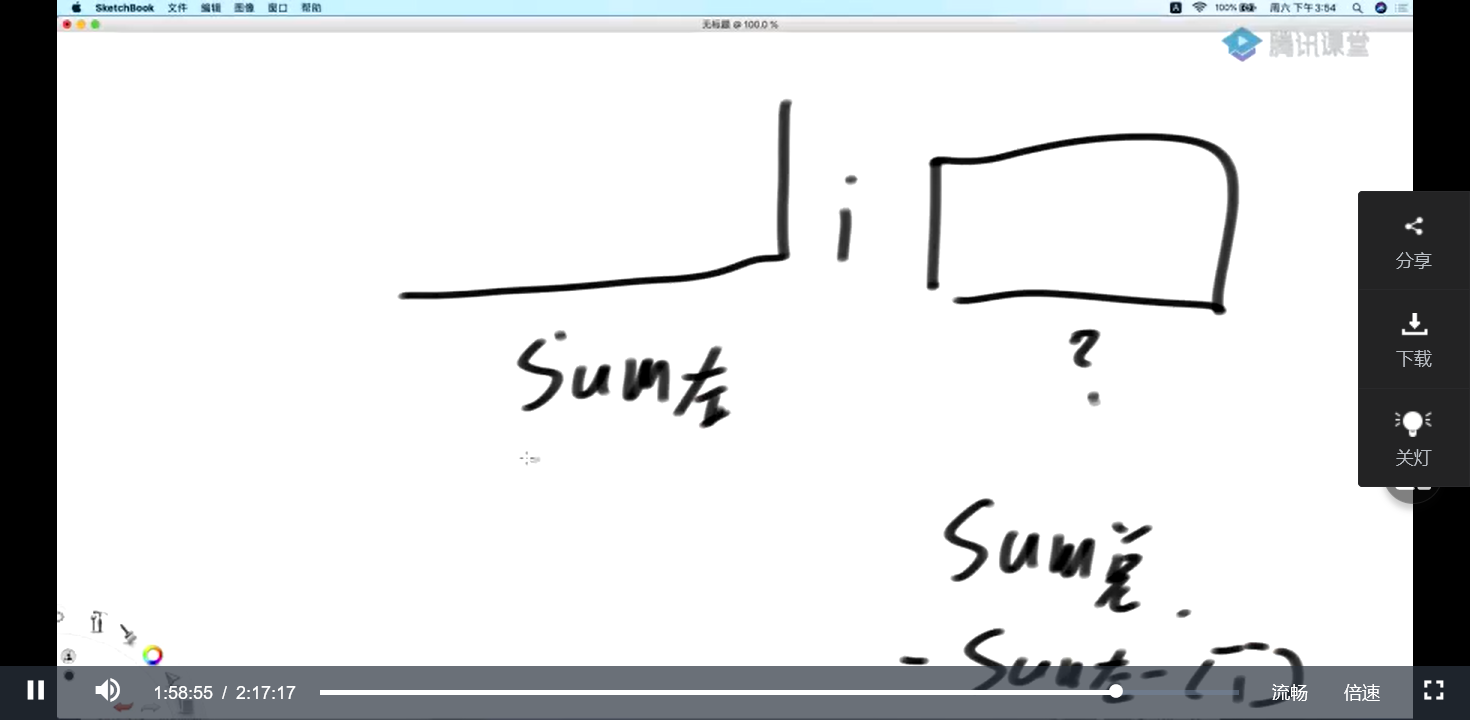 SketchBook 文件 编辑 图像 窗口 帮助 100% 周六 下午3:54
无标题 @ 100.0 %
腾讯课堂
i
?
Sum左
Sum总
- Sum左 - (i)
分享
下载
关灯
1:58:55 / 2:17:17 流畅 倍速